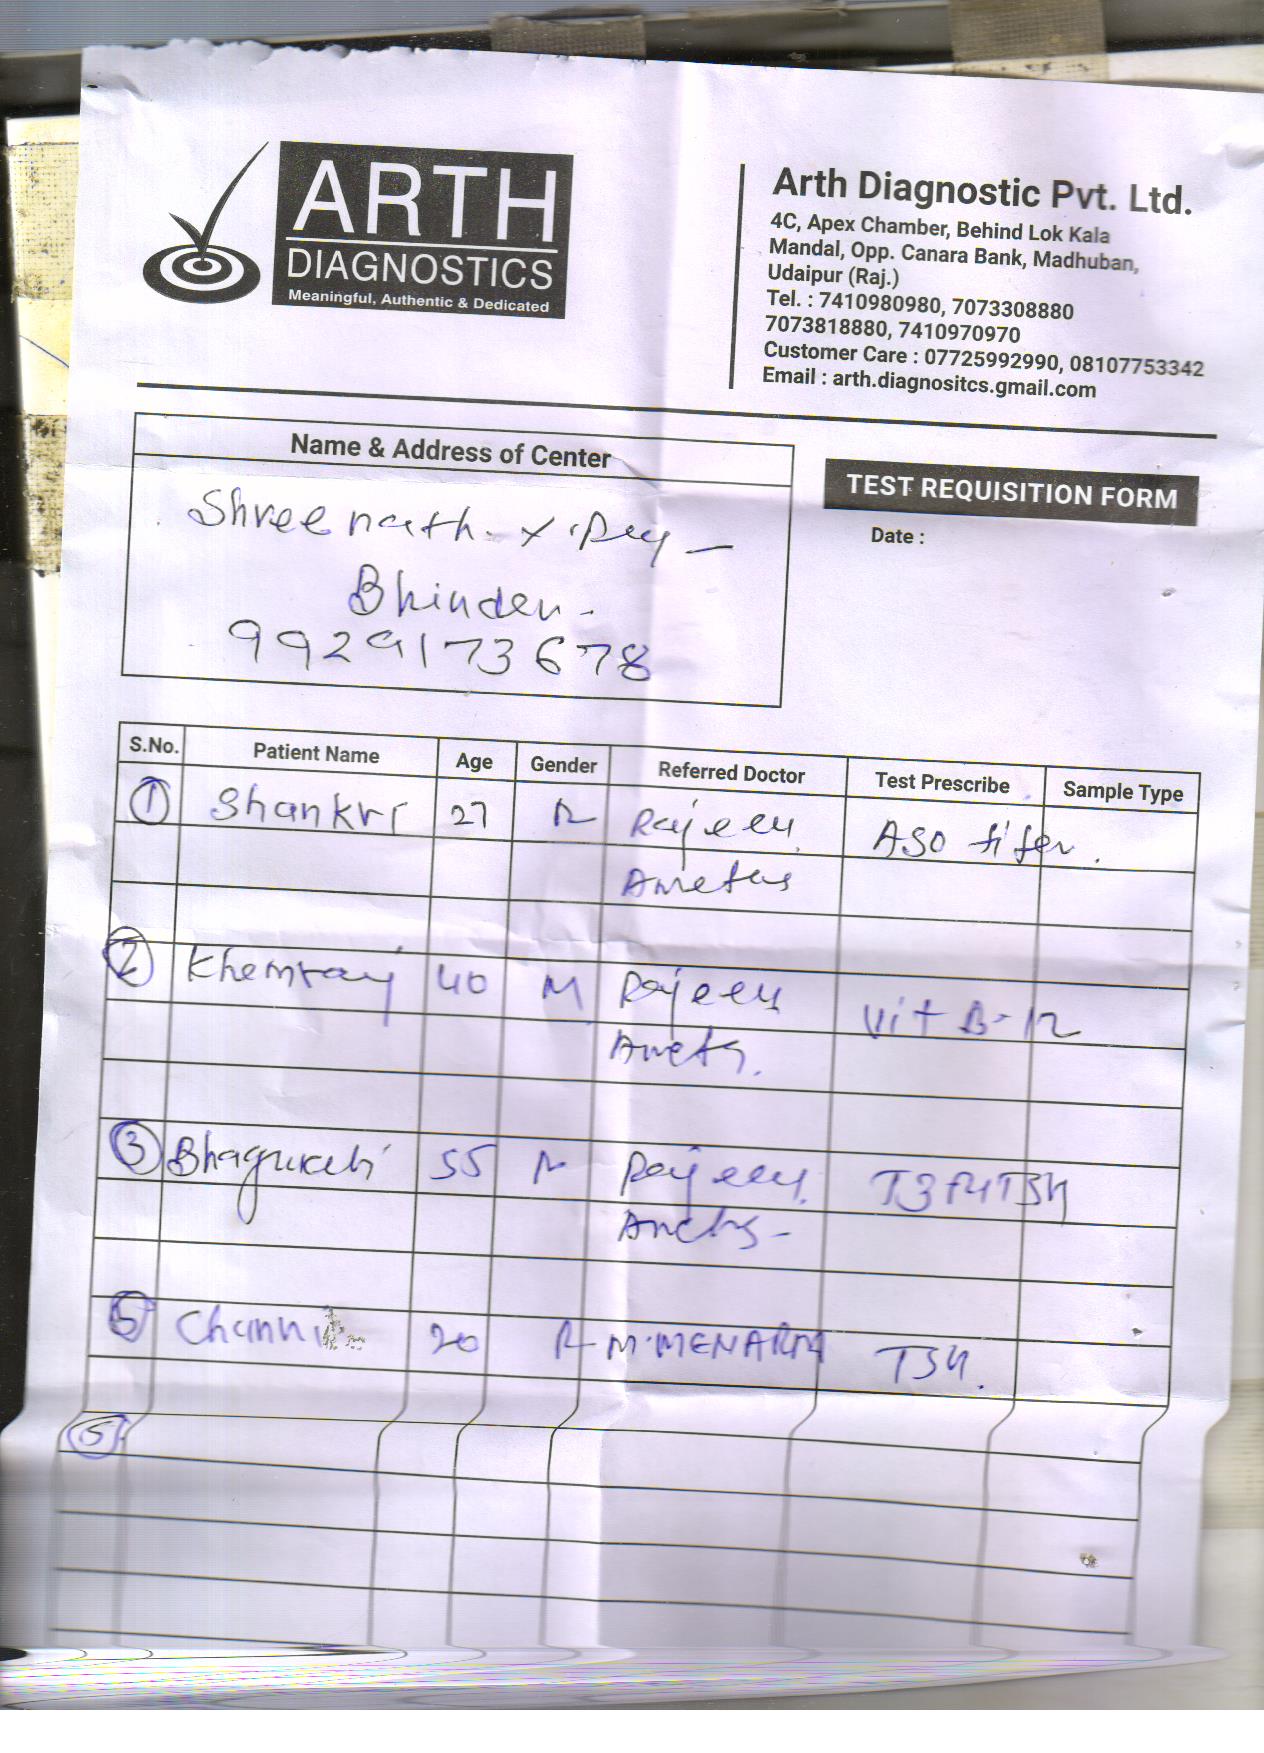 ARTH
DIAGNOSTICS
Meaningful, Authentic & Dedicated
Arth Diagnostic Pvt. Ltd.
4C, Apex Chamber, Behind Lok Kala
Mandal, Opp. Canara Bank, Madhuban,
Udaipur (Raj.)
Tel. : 7410980980, 7073308880
7073818880, 7410970970
Customer Care : 07725992990, 08107753342
Email : arth.diagnositcs.gmail.com
Name & Address of Center
Shreenath
Bhinder
9929173678
TEST REQUISITION FORM
Date :
S.No. Patient Name Age Gender Referred Doctor Test Prescribe Sample Type
1 Shankri 27 Rajeev ASO titer.
2 Khemraj 40 M Rajeev Vit B-12
3 55 Rajeev T3T4TSH
20 M.MENARIA TSH.
5